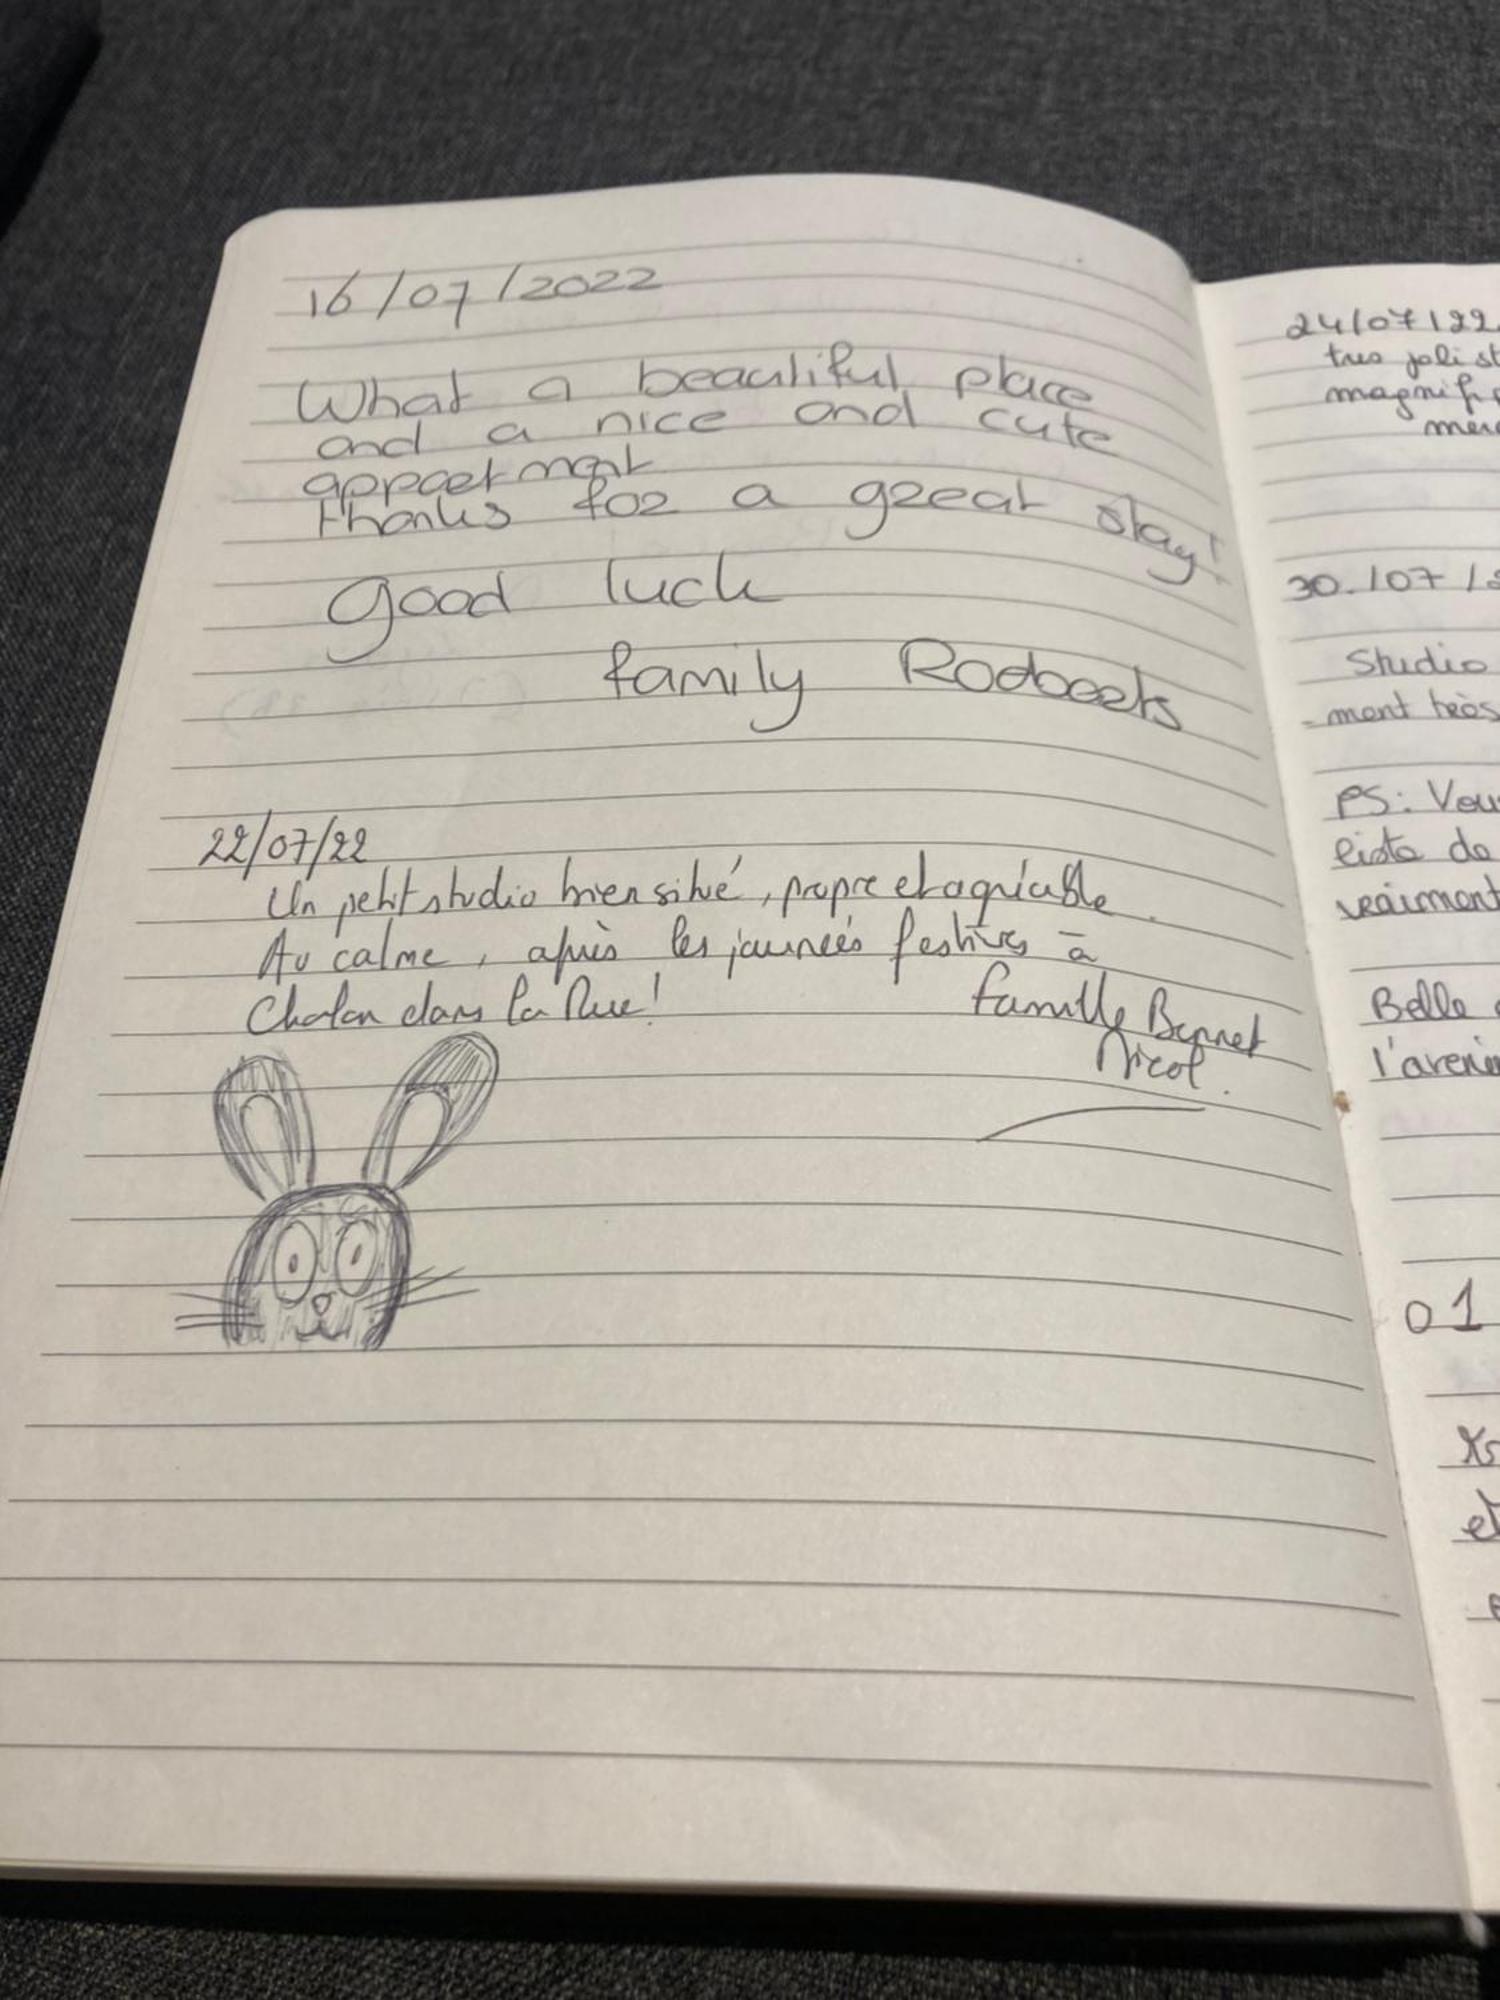 16/07/2022
What a beautiful place
and a nice and cute
appartment
thanks for a great stay!
good luck
family Rodoerts
22/07/22
Un petit studio bien situé, propre et agréable.
Au calme, après les journées festives à
Chalon dans la Rue!
famille Bonnet
Nicol.
24/07/22
très joli st
magnif
merc
30./07/2
Studio
-ment très
PS: Vous
liste de
vraiment
Belle
l'aveni
01
et